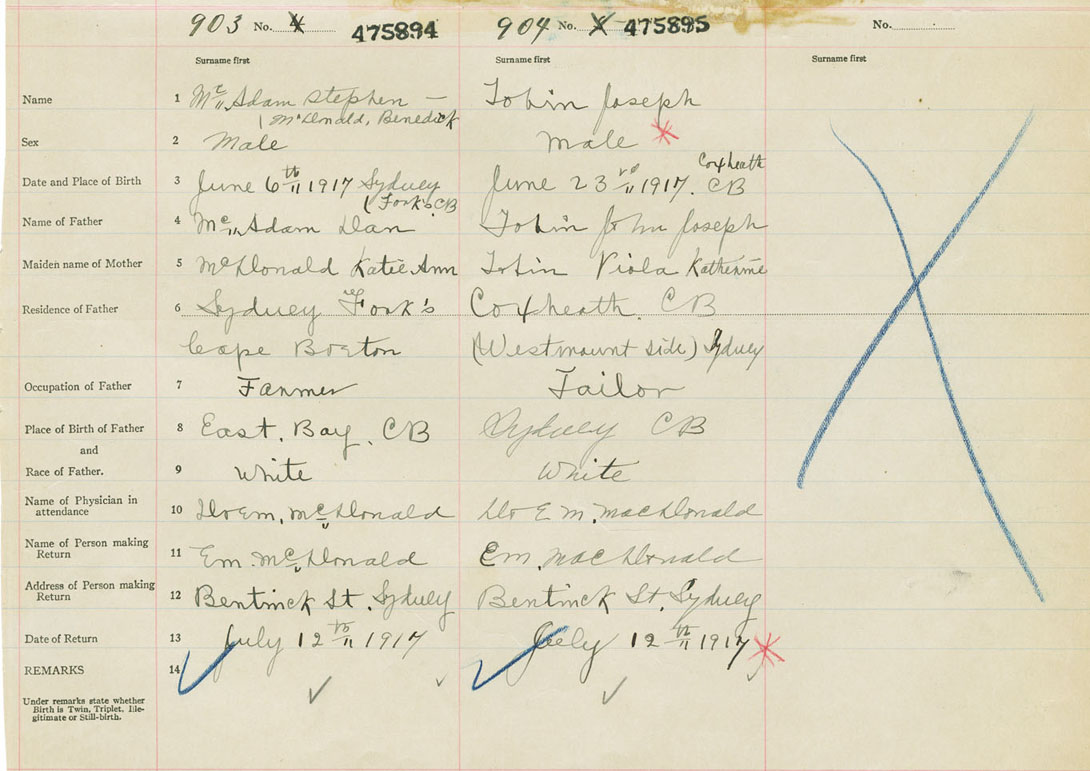 903 No. 4 475894 904 No. 475895 No.
Surname first Surname first Surname first
Name 1 Mc Adam Stephen — Tobin Joseph
( McDonald, Benedick
Sex 2 Male Male
Coxheath
Date and Place of Birth 3 June 6th 1917 Sydney June 23rd 1917. CB
( Fork's, CB
Name of Father 4 Mc Adam Dan Tobin John Joseph
Maiden name of Mother 5 McDonald Katie Ann Tobin Viola Katherine
Residence of Father 6 Sydney Fork's Coxheath. CB
Cape Breton (Westmount side) Sydney
Occupation of Father 7 Farmer Tailor
Place of Birth of Father 8 East. Bay. CB Sydney CB
and
Race of Father. 9 White White
Name of Physician in
attendance 10 Dr Em. McDonald Dr E M. MacDonald
Name of Person making
Return 11 Em. McDonald Em. MacDonald
Address of Person making
Return 12 Bentinck St. Sydney Bentinck St. Sydney
Date of Return 13 July 12th 1917 July 12th 1917
REMARKS 14
Under remarks state whether
Birth is Twin, Triplet, Ille-
gitimate or Still-birth.